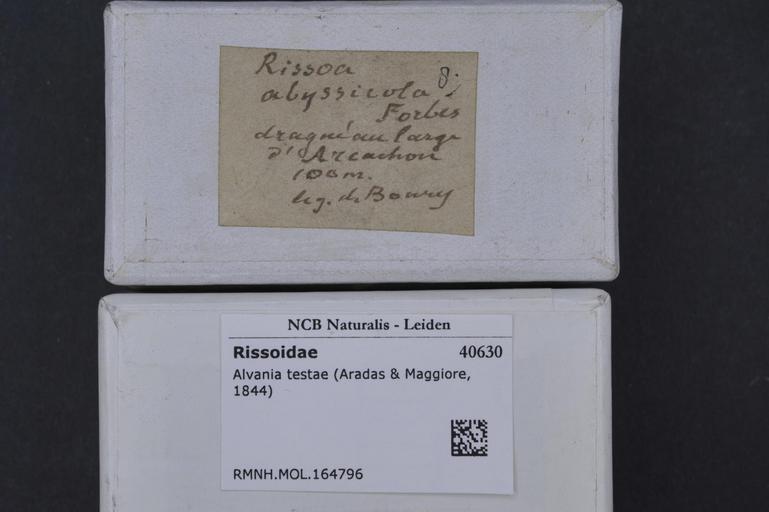 Rissoa
abyssicola 8;
Forbes
dragué au large
d'Arcachon
100m.
leg. de Boury
NCB Naturalis - Leiden
Rissoidae 40630
Alvania testae (Aradas & Maggiore,
1844)
RMNH.MOL.164796